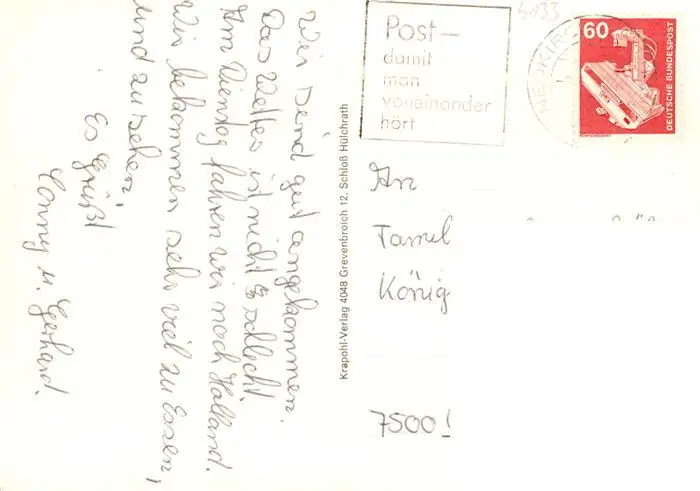 Wir sind gut angekommen.
Das Wetter ist nicht so schlecht.
Am Dienstag fahren wir nach Holland.
Wir bekommen sehr viel zu Essen,
und zu sehen,
Es Grüßt
Conny u. Gerhard.
Krapohl-Verlag 4048 Grevenbroich 12, Schloß Hülchrath
Post—
damit
man
voneinander
hört
4133
60
DEUTSCHE BUNDESPOST
An
Famil
König
7500!